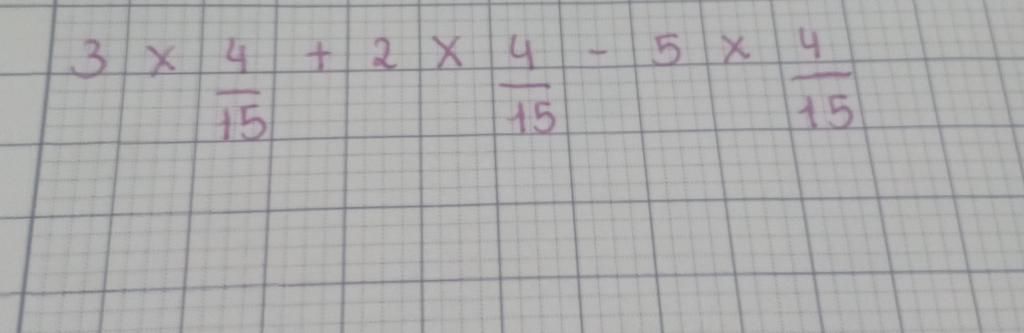 3 × 4/15 + 2 × 4/15 - 5 × 4/15